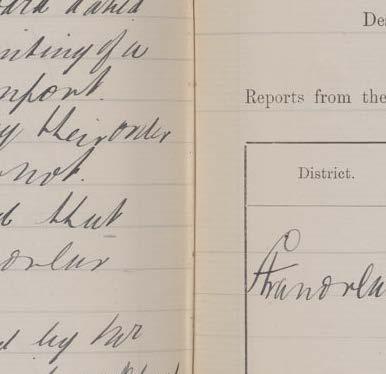 ard dated
nting of a
mport.
y their order
not.
d that
orlar
d by Mr
De
Reports from the
District.
Stranorla